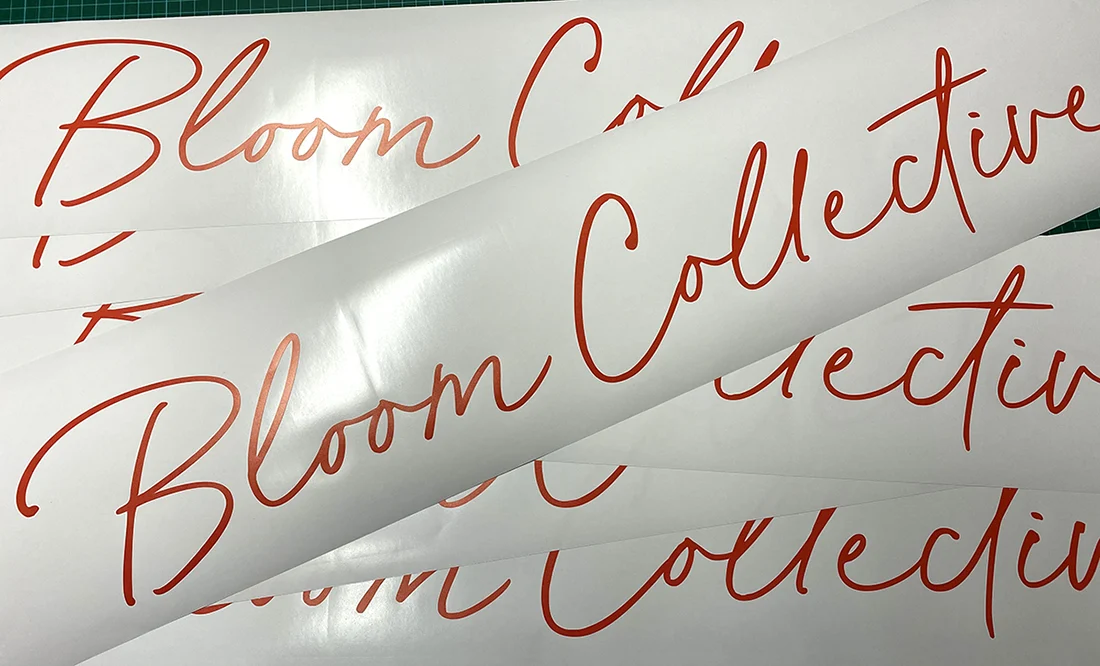 Bloom Coll
Bloom Collective
lectiv
om Collectiv